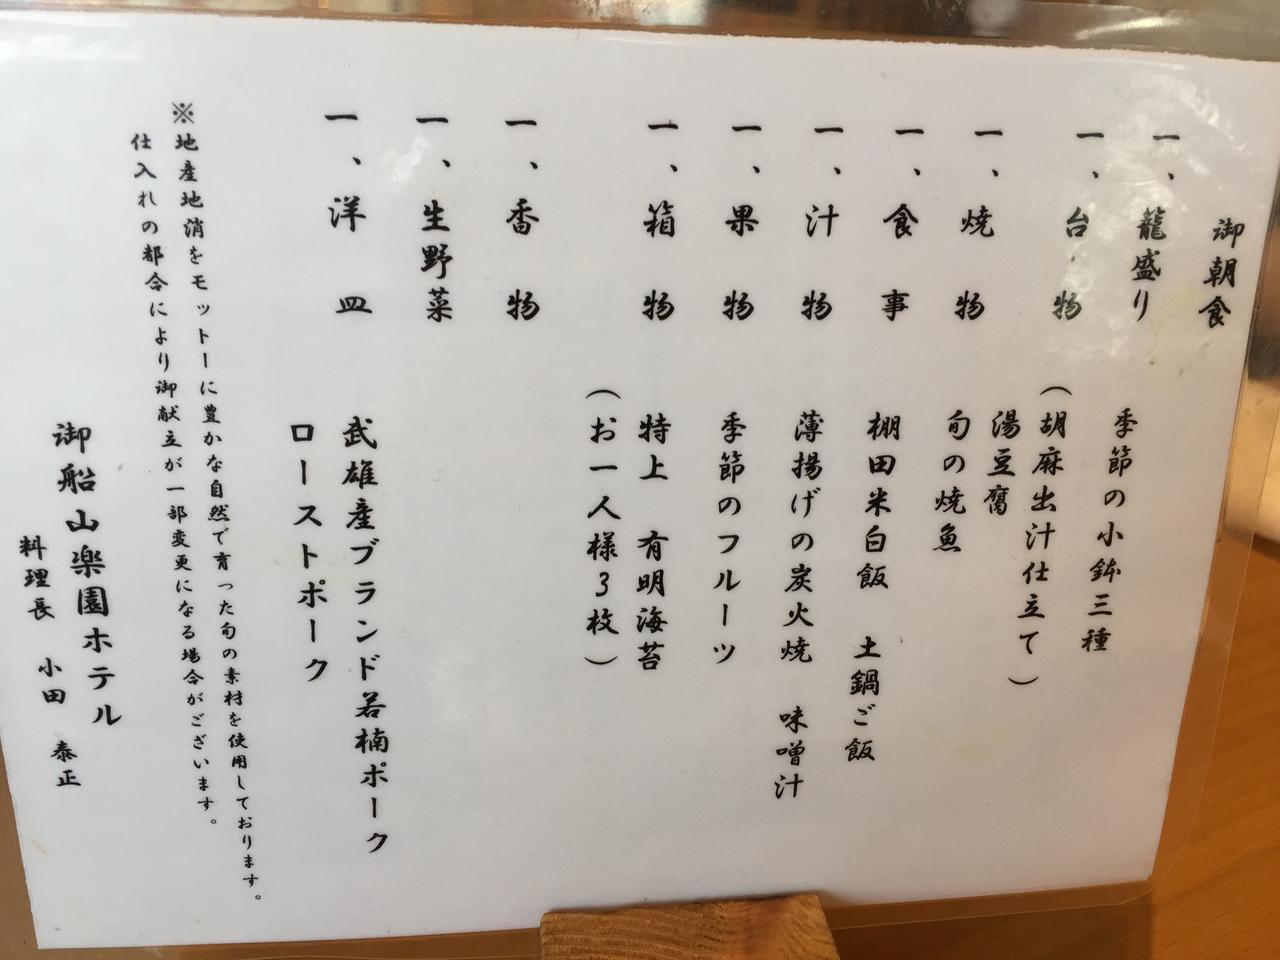 御朝食
一、籠盛り　季節の小鉢三種
一、台物　（胡麻出汁仕立て）
湯豆腐
一、焼物　旬の焼魚
一、食事　棚田米白飯　土鍋ご飯
一、汁物　薄揚げの炭火焼　味噌汁
一、果物　季節のフルーツ
一、箱物　特上　有明海苔
（お一人様３枚）
一、香物
一、生野菜
一、洋皿　武雄産ブランド若楠ポーク
ローストポーク
※地産地消をモットーに豊かな自然で育った旬の素材を使用しております。
仕入れの都合により御献立が一部変更になる場合がございます。
御船山楽園ホテル
料理長　小田　泰正